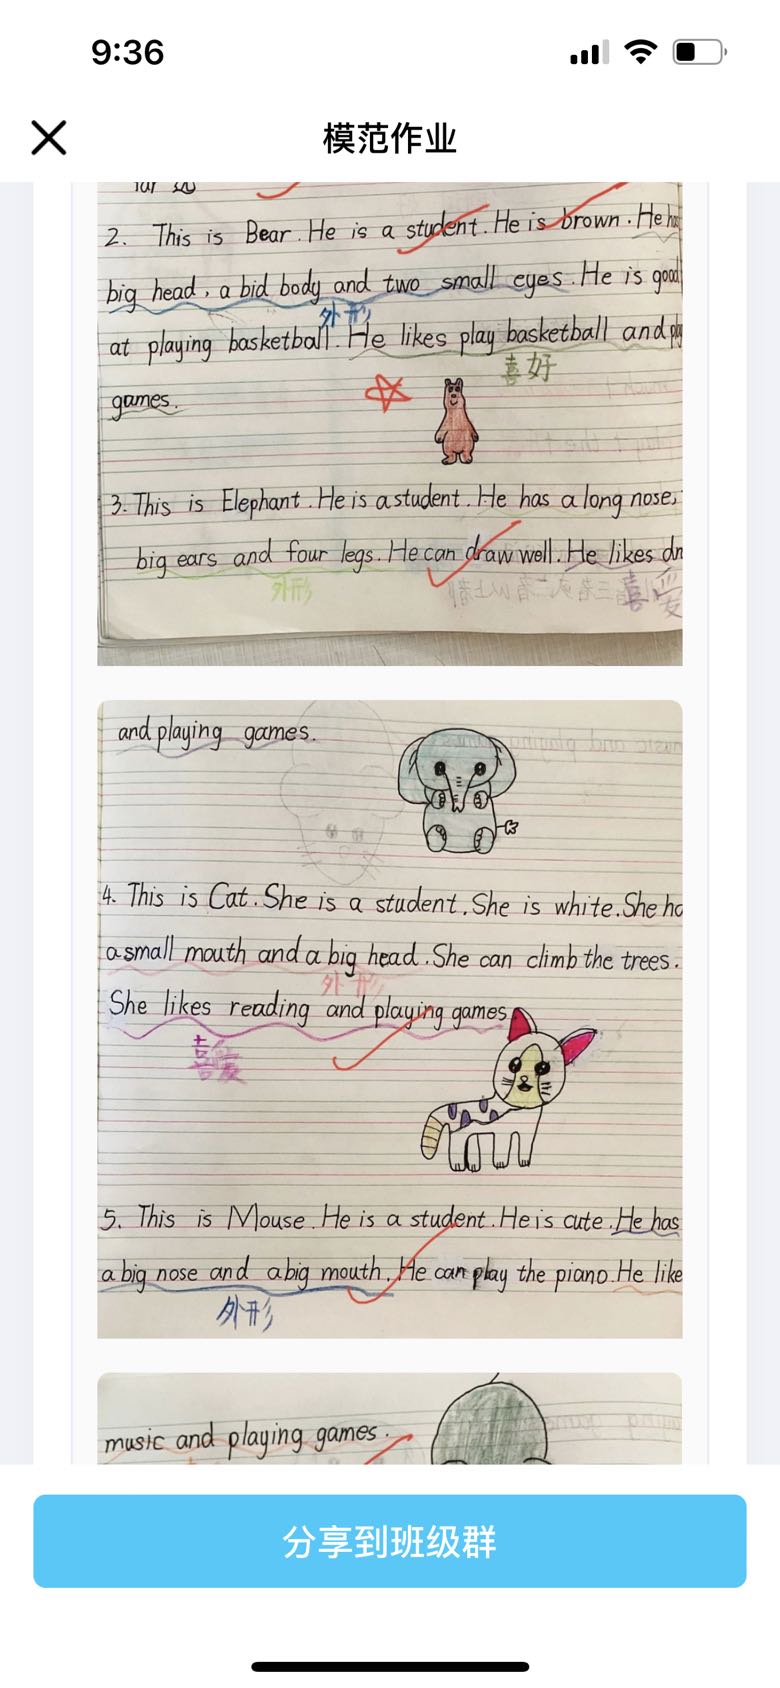 9:36
模范作业
2. This is Bear. He is a student. He is brown. He
big head, a bid body and two small eyes. He is good
外形
at playing basketball. He likes play basketball and
喜好
games.
3. This is Elephant. He is a student. He has a long nose,
big ears and four legs. He can draw well. He likes
外形
喜爱
and playing games.
4. This is Cat. She is a student. She is white. She
a small mouth and a big head. She can climb the trees.
外形
She likes reading and playing games.
喜爱
5. This is Mouse. He is a student. He is cute. He has
a big nose and a big mouth. He can play the piano. He like
外形
music and playing games.
分享到班级群